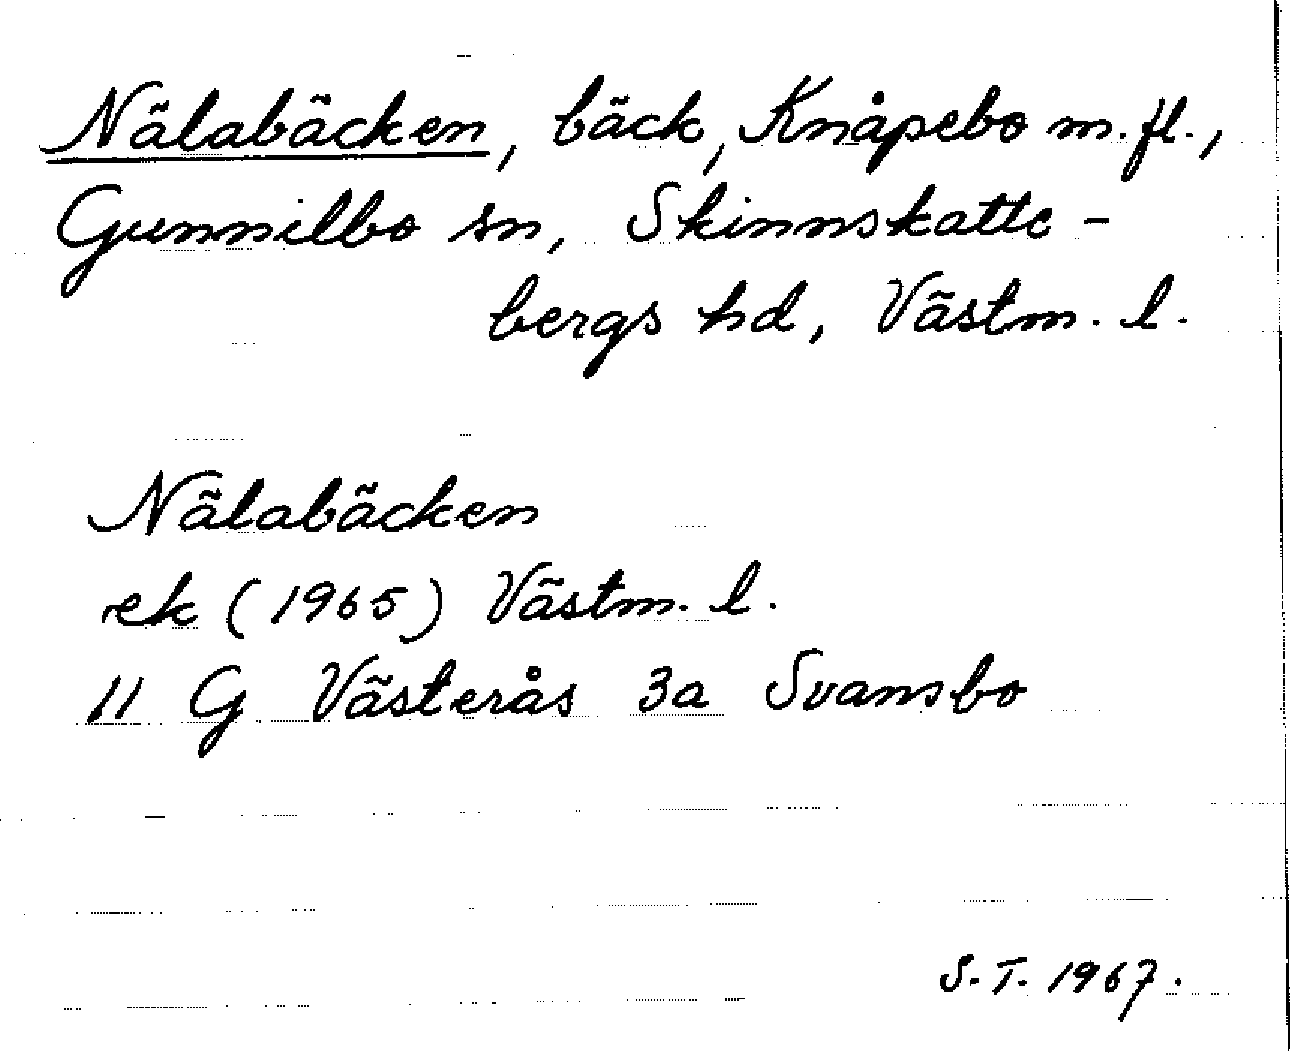 Nälabäcken, bäck, Knåpebo m.fl.,
Gunnilbo sn, Skinnskatte-
bergs hd, Västm. l.
Nälabäcken
rek (1965) Västm. l.
11 G Västerås 3a Svansbo
S.T. 1967.